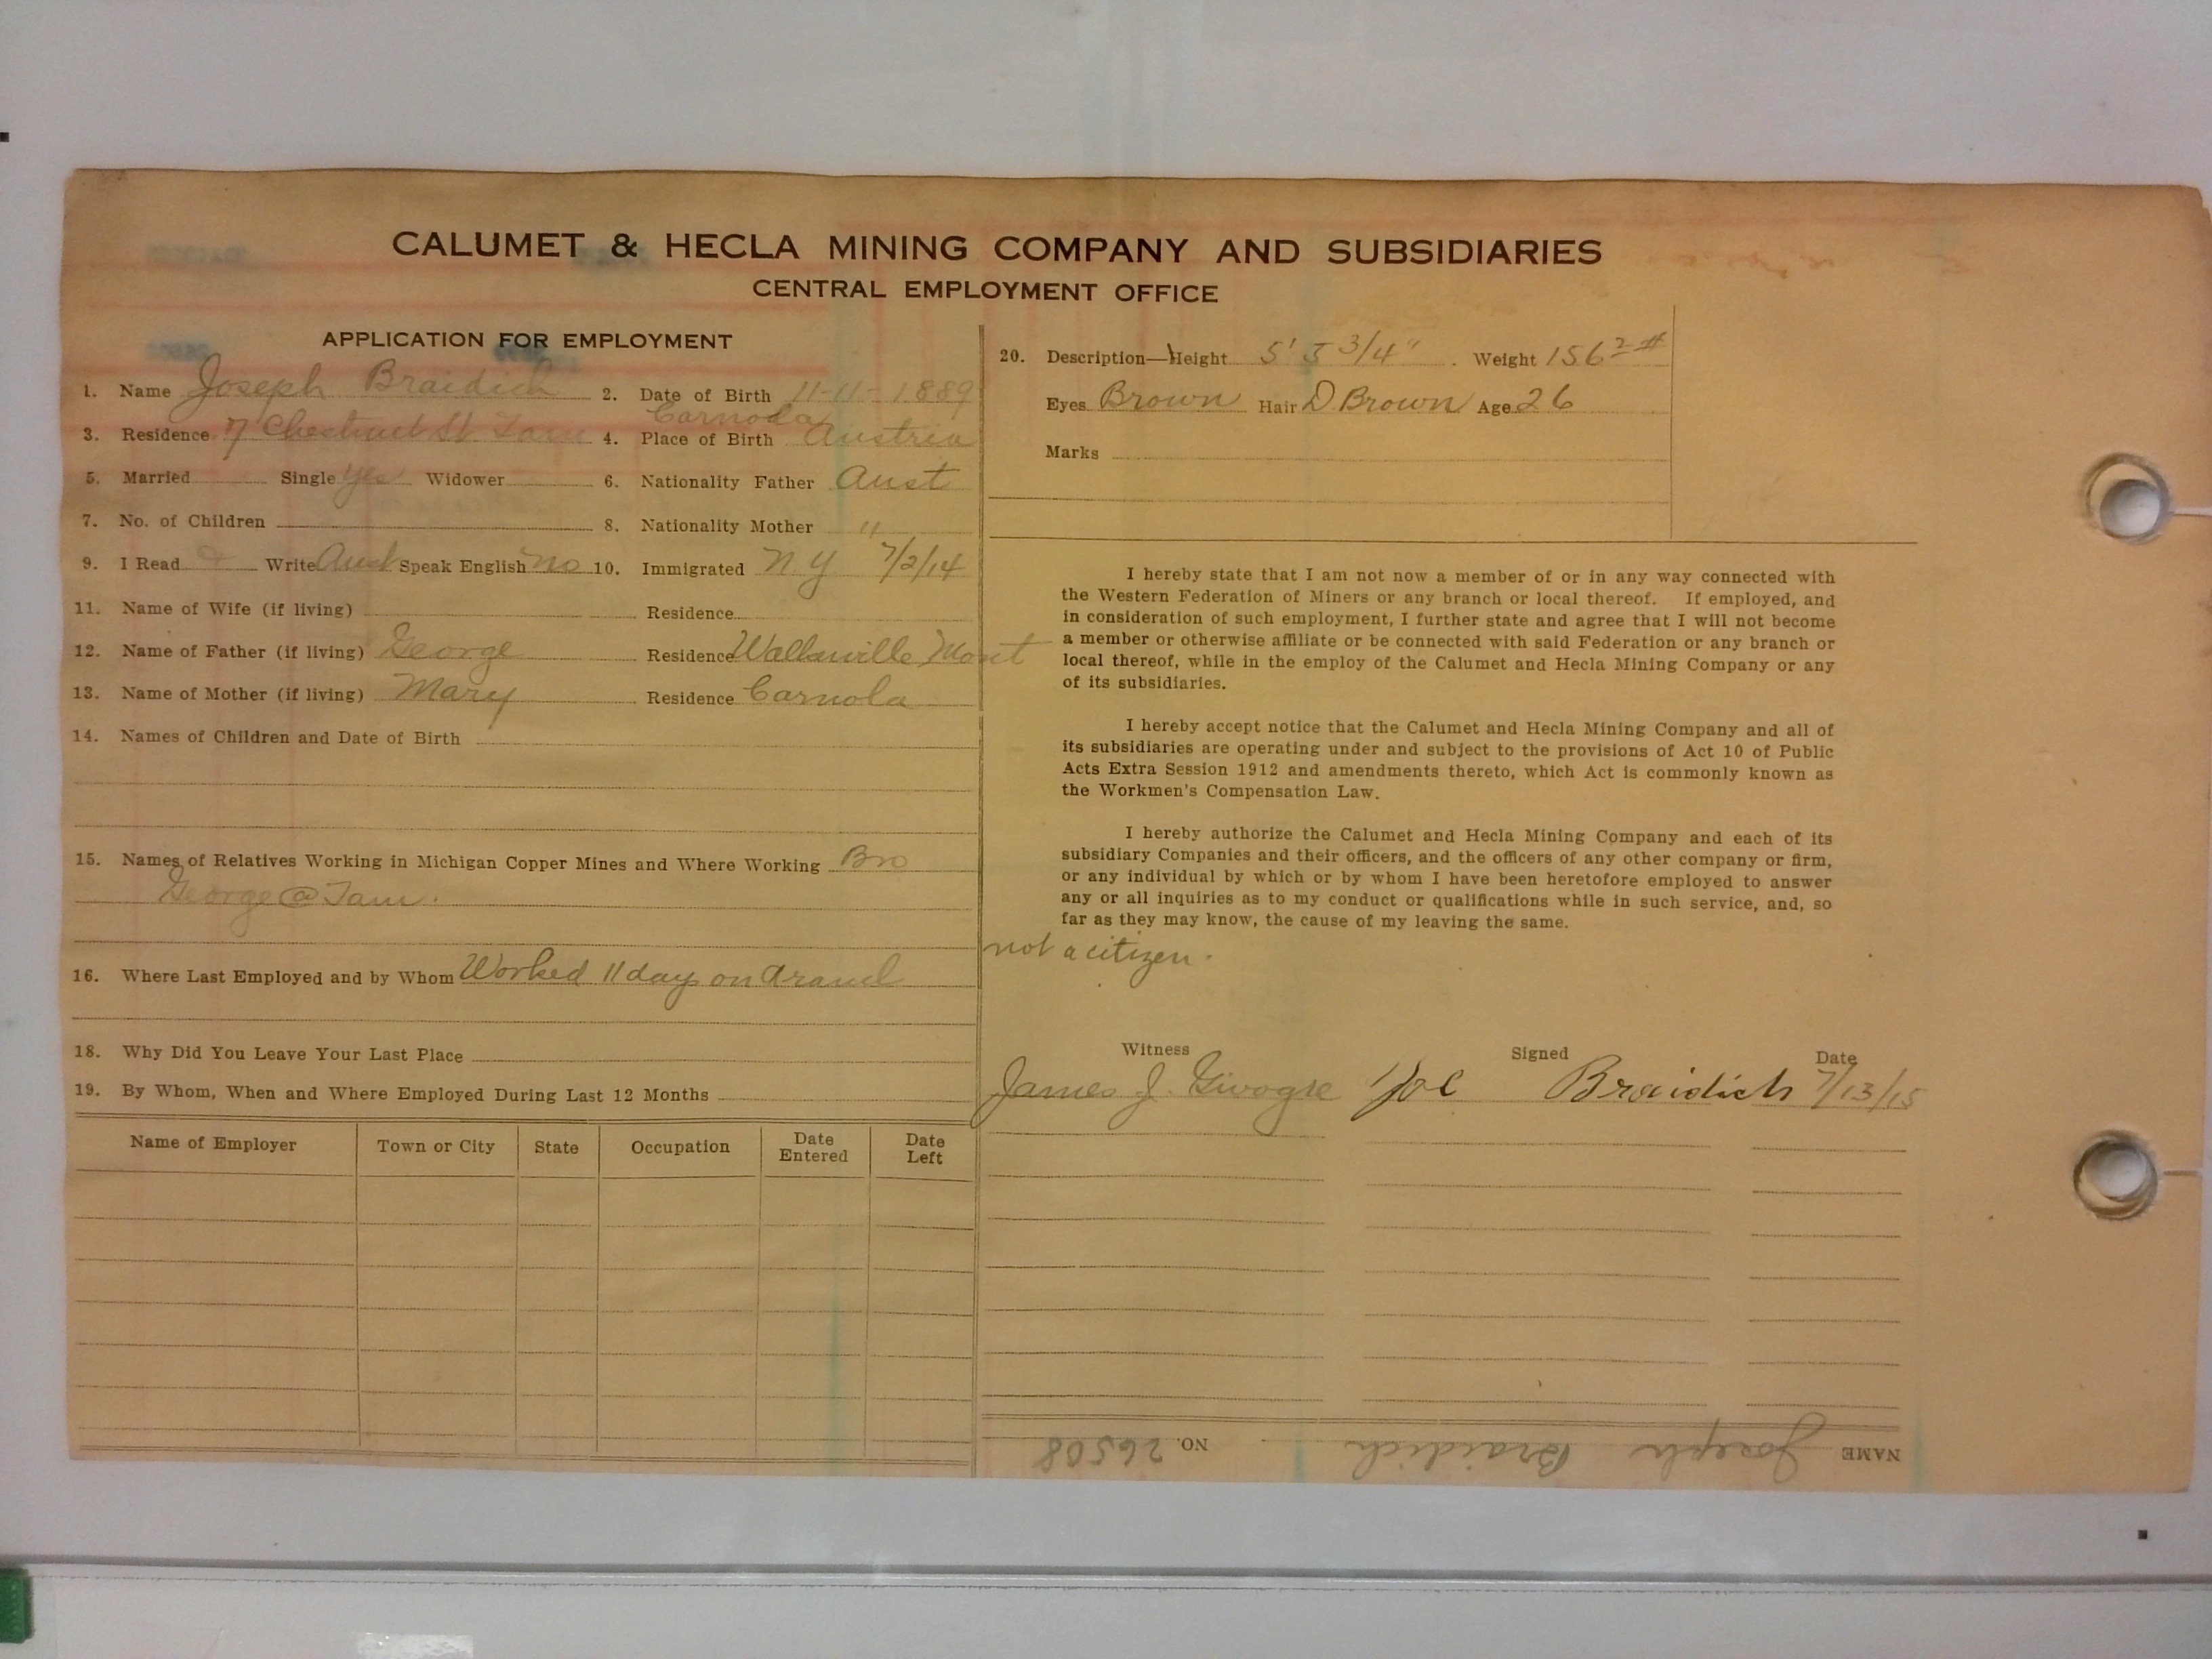 CALUMET & HECLA MINING COMPANY AND SUBSIDIARIES
CENTRAL EMPLOYMENT OFFICE
APPLICATION FOR EMPLOYMENT
1. Name Joseph Braidich 2. Date of Birth 11-11-1889
3. Residence 7 Chestnut St. Tam 4. Place of Birth Carnola Austria
5. Married Single Yes Widower 6. Nationality Father Aust
7. No. of Children 8. Nationality Mother "
9. I Read & Write Aust Speak English no 10. Immigrated N Y 7/2/14
11. Name of Wife (if living) Residence
12. Name of Father (if living) George Residence Mont
13. Name of Mother (if living) Mary Residence Carnola
14. Names of Children and Date of Birth
15. Names of Relatives Working in Michigan Copper Mines and Where Working Bro
George @ Tam.
16. Where Last Employed and by Whom Worked 11 day on
18. Why Did You Leave Your Last Place
19. By Whom, When and Where Employed During Last 12 Months
Name of Employer Town or City State Occupation Date Entered Date Left
20. Description—Height 5' 5 3/4" Weight 156 2 #
Eyes Brown Hair D. Brown Age 26
Marks
I hereby state that I am not now a member of or in any way connected with
the Western Federation of Miners or any branch or local thereof. If employed, and
in consideration of such employment, I further state and agree that I will not become
a member or otherwise affiliate or be connected with said Federation or any branch or
local thereof, while in the employ of the Calumet and Hecla Mining Company or any
of its subsidiaries.
I hereby accept notice that the Calumet and Hecla Mining Company and all of
its subsidiaries are operating under and subject to the provisions of Act 10 of Public
Acts Extra Session 1912 and amendments thereto, which Act is commonly known as
the Workmen's Compensation Law.
I hereby authorize the Calumet and Hecla Mining Company and each of its
subsidiary Companies and their officers, and the officers of any other company or firm,
or any individual by which or by whom I have been heretofore employed to answer
any or all inquiries as to my conduct or qualifications while in such service, and, so
far as they may know, the cause of my leaving the same.
not a citizen.
Witness Signed Date
James J. Joe Braidich 7/13/15
NAME Joseph Braidich NO. 26508